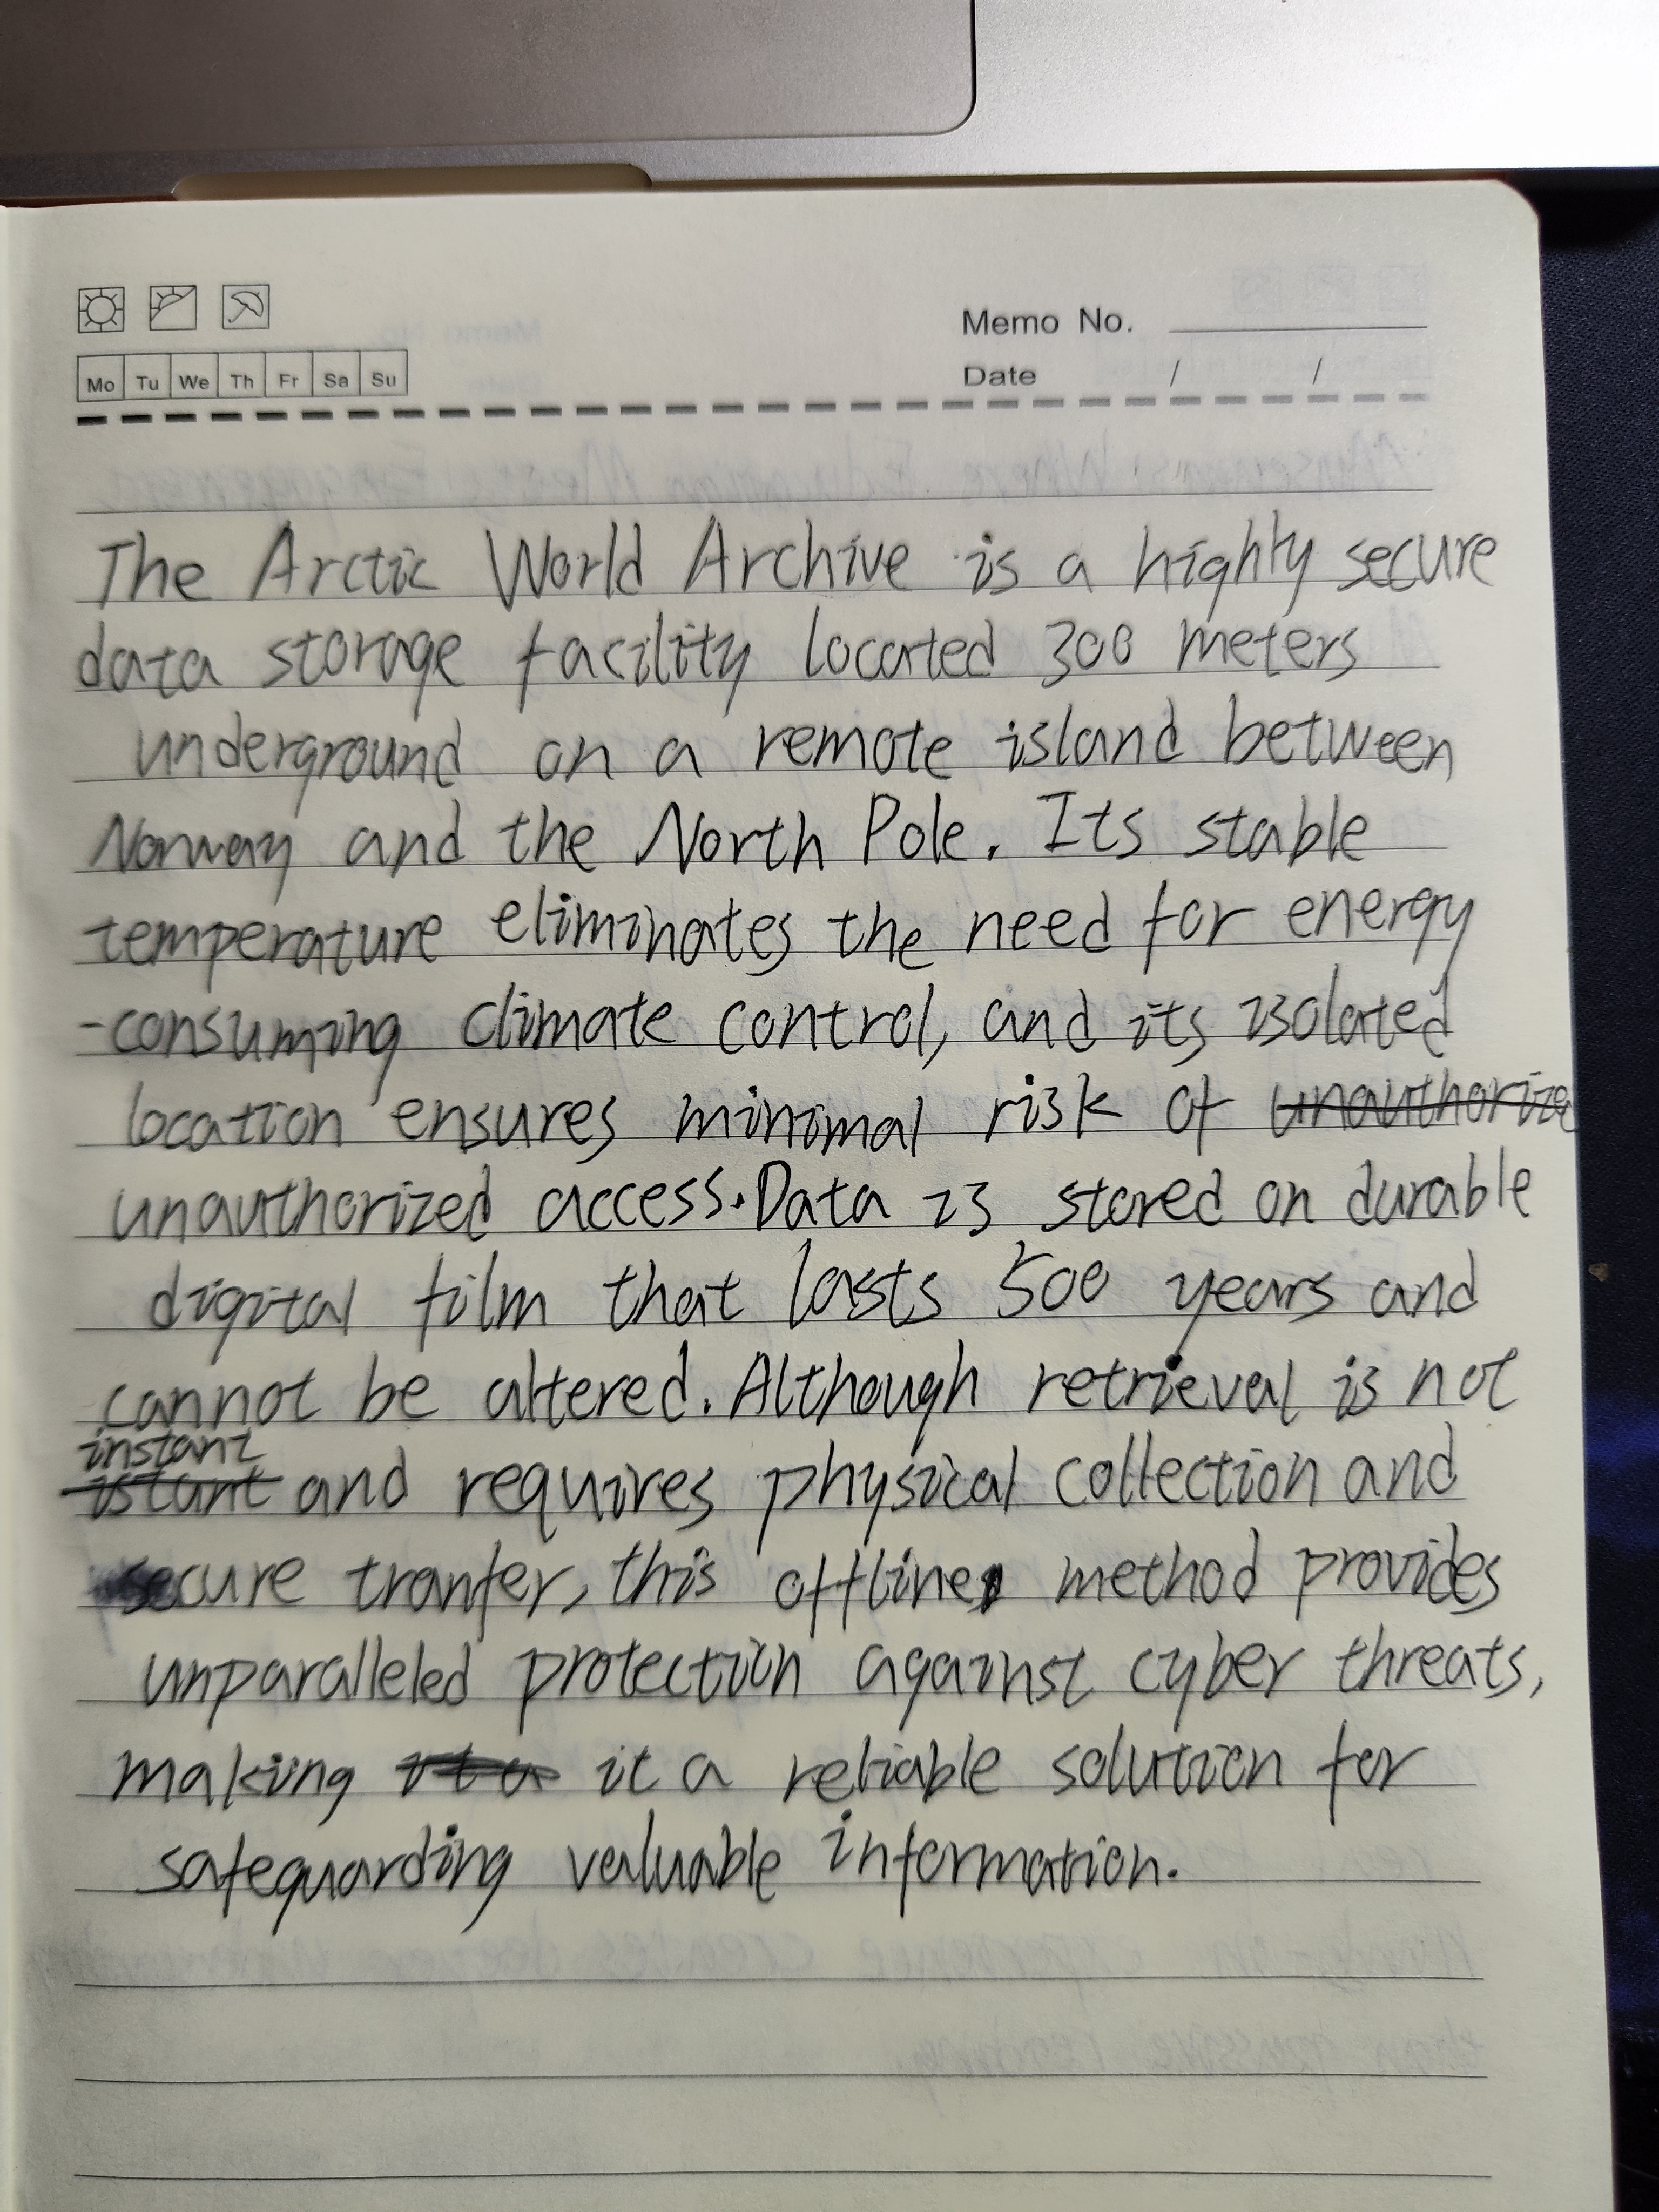 Memo No.
Mo Tu We Th Fr Sa Su
Date / /
The Arctic World Archive is a highly secure
data storage facility located 300 meters
underground on a remote island between
Norway and the North Pole. Its stable
temperature eliminates the need for energy
-consuming climate control, and its isolated
location ensures minimal risk of unauthorize
unauthorized access. Data is stored on durable
digital film that lasts 500 years and
cannot be altered. Although retrieval is not
instant
istant and requires physical collection and
secure tranfer, this offline method provides
unparalleled protection against cyber threats,
making it a it a reliable solution for
safeguarding valuable information.